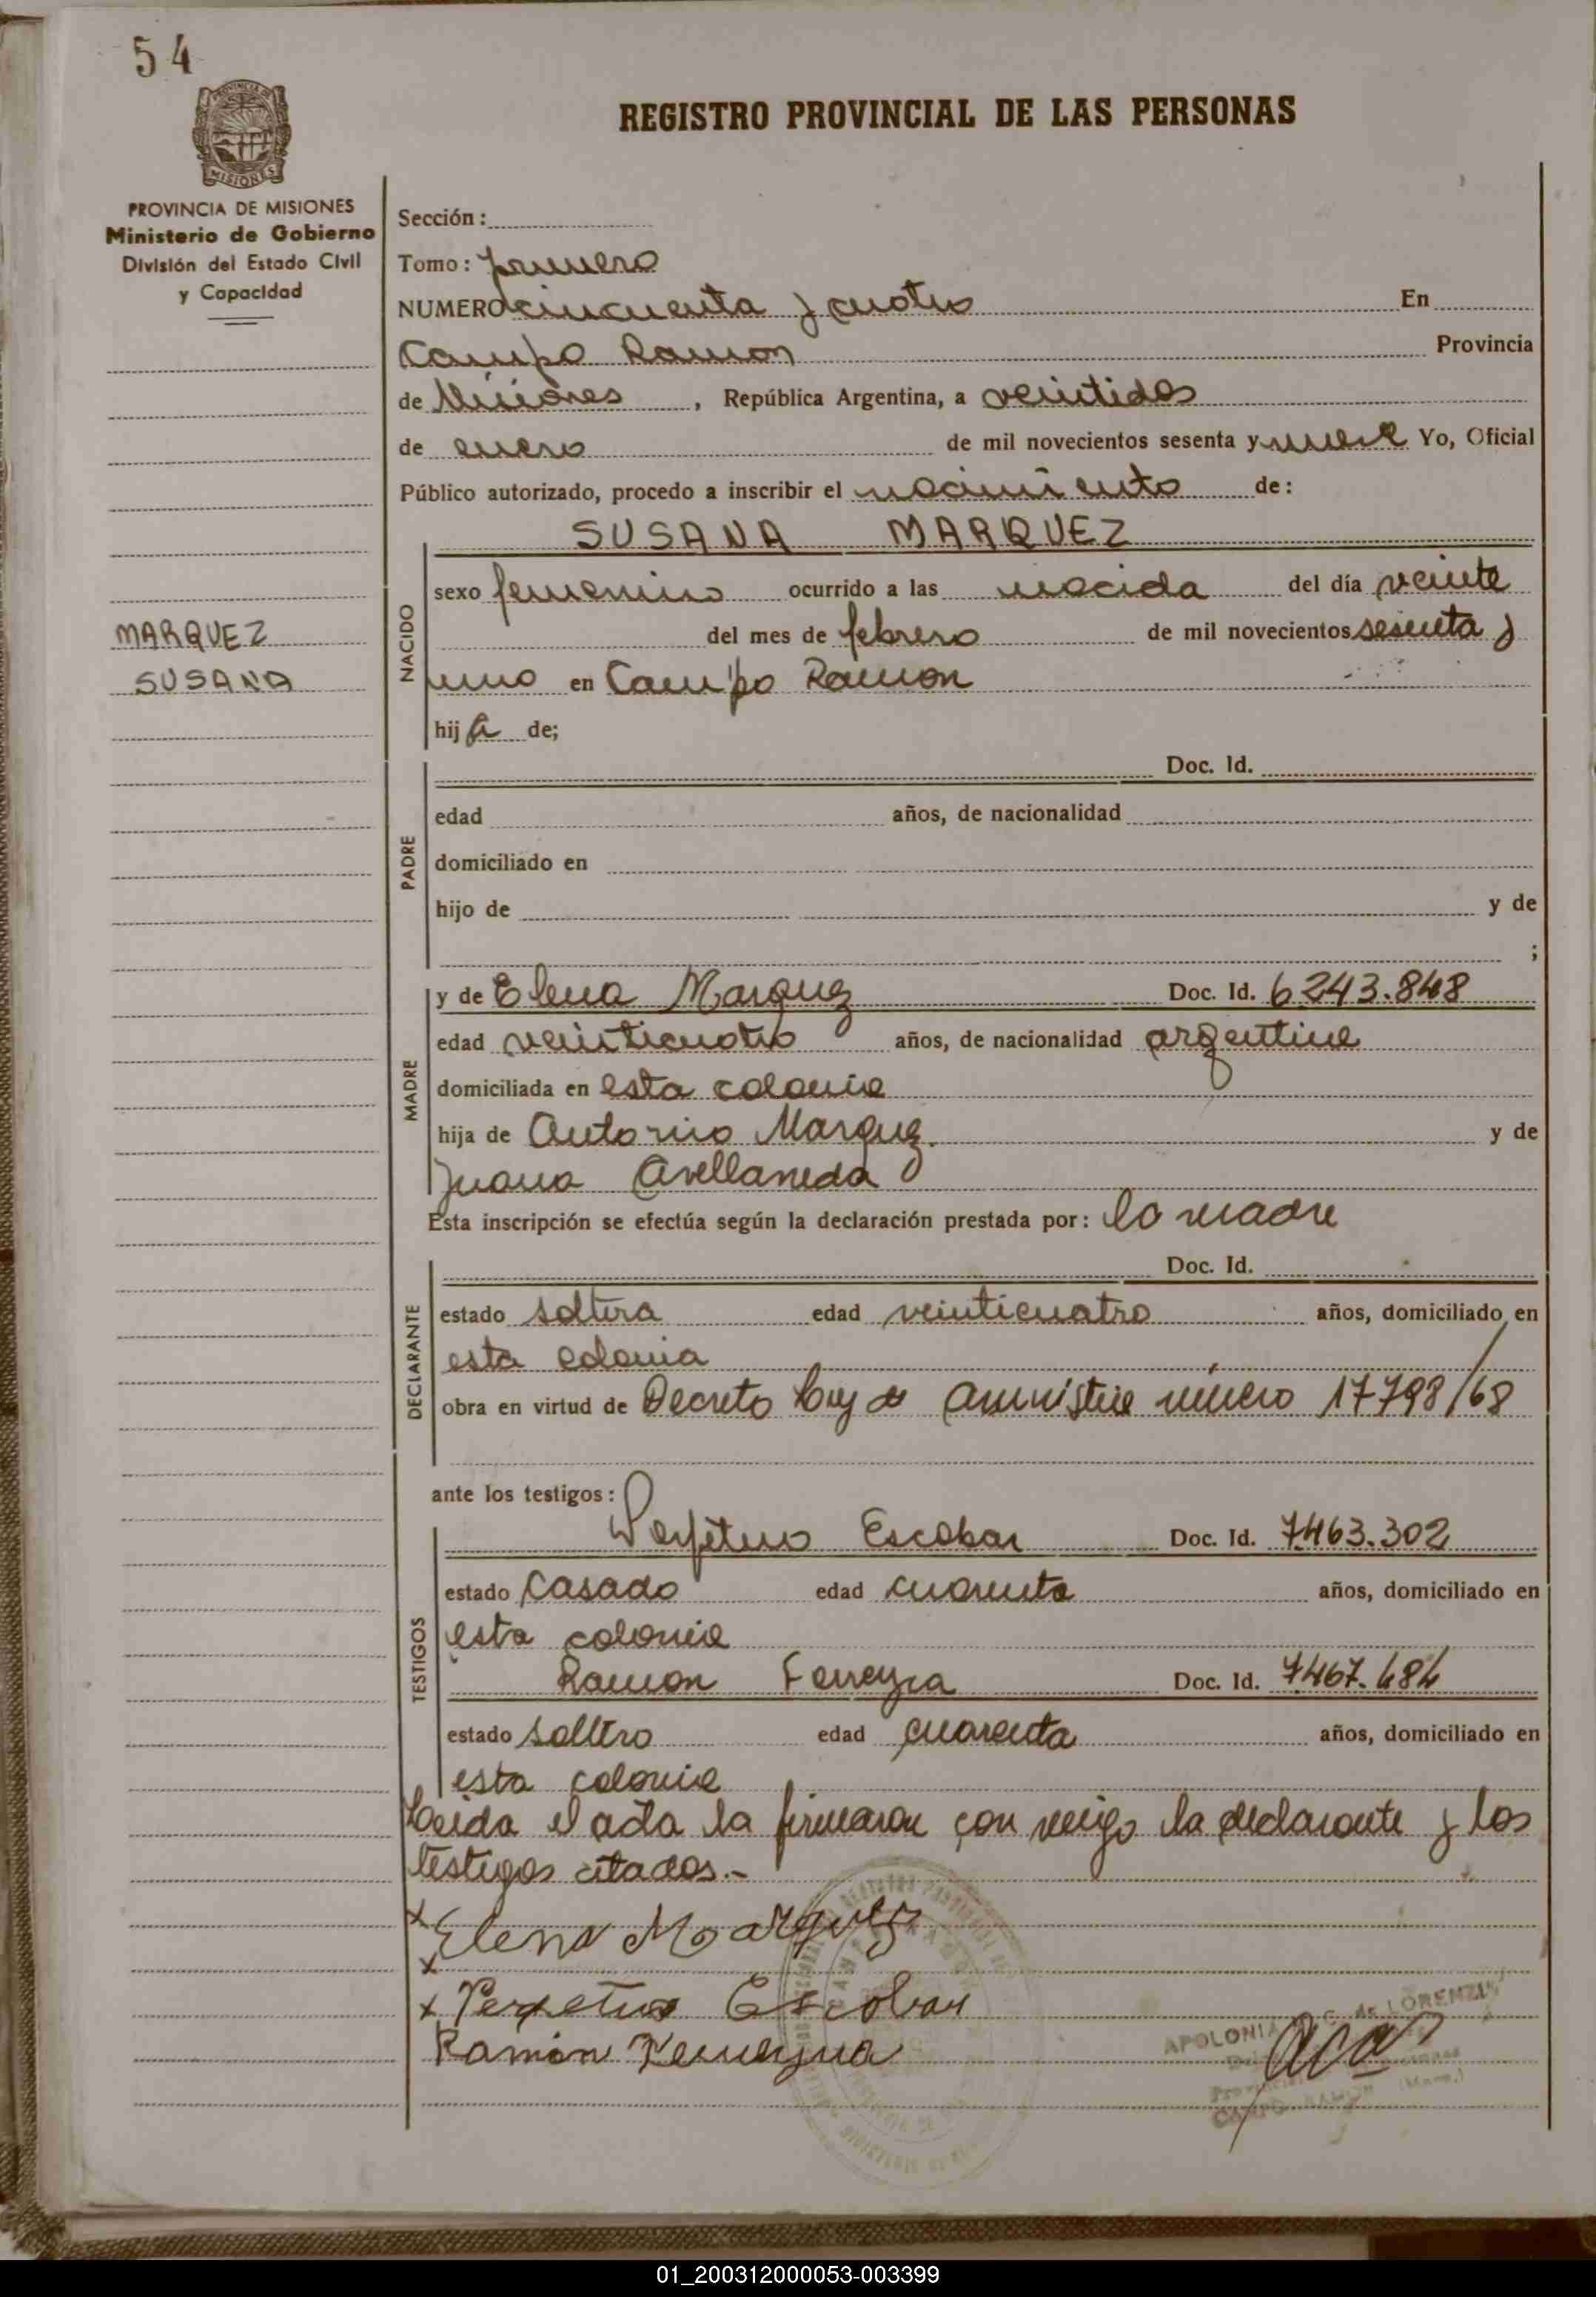 54
REGISTRO PROVINCIAL DE LAS PERSONAS
MISIONES
PROVINCIA DE MISIONES
Ministerio de Gobierno
División del Estado Civil
y Capacidad
Sección:
Tomo: primero
NUMERO cincuenta y cuatro En
Campo Ramon Provincia
de Misiones, República Argentina, a veintidos
de enero de mil novecientos sesenta y nueve Yo, Oficial
Público autorizado, procedo a inscribir el nacimiento de:
SUSANA MARQUEZ
MARQUEZ
SUSANA
NACIDO
sexo femenino ocurrido a las nacida del día veinte
del mes de febrero de mil novecientos sesenta y
uno en Campo Ramon
hij a de;
PADRE
Doc. Id.
edad años, de nacionalidad
domiciliado en
hijo de y de
;
MADRE
y de Elena Marquez Doc. Id. 6243.848
edad veinticuatro años, de nacionalidad argentina
domiciliada en esta colonia
hija de Antonio Marquez. y de
Juana Avellaneda
Esta inscripción se efectúa según la declaración prestada por: la madre
DECLARANTE
Doc. Id.
estado soltera edad veinticuatro años, domiciliado en
esta colonia
obra en virtud de Decreto Ley de Amnistia número 17798/68
ante los testigos:
TESTIGOS
Perpetuo Escobar Doc. Id. 7463.302
estado casado edad cuarenta años, domiciliado en
esta colonia
Ramon Ferreyra Doc. Id. 7467.484
estado soltero edad cuarenta años, domiciliado en
esta colonia
Leida el acta la firmaron con migo la declarante y los
testigos citados.-
x Elena Marquez
x
x Perpetuo Escobar
Ramón Ferreyra
APOLONIA C. de LORENZI
CAMPO RAMON
01_200312000053-003399